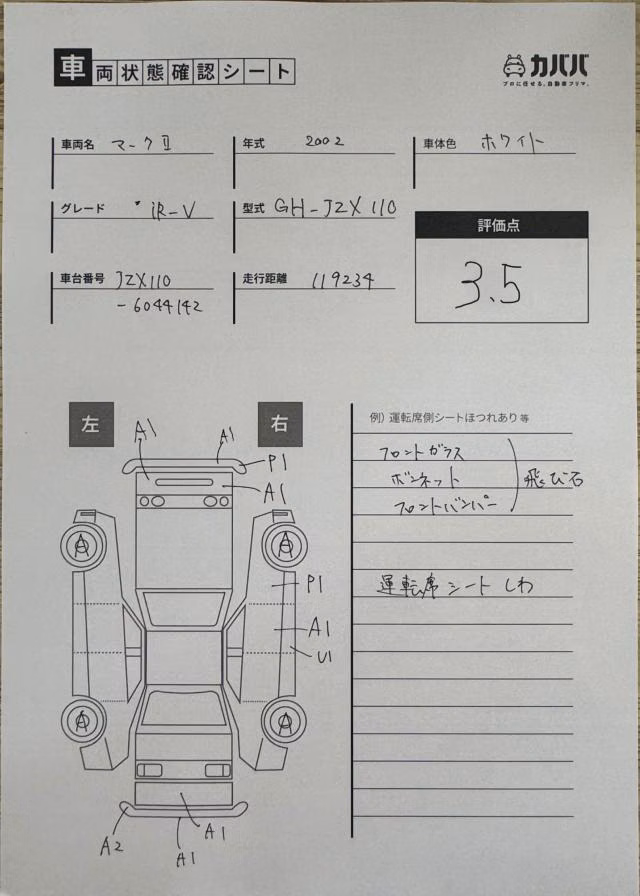 車両状態確認シート
カババ
プロに任せる。自動車フリマ。
車両名 マークⅡ
年式 2002
車体色 ホワイト
グレード iR-V
型式 GH-JZX110
評価点
3.5
車台番号 JZX110
-6044142
走行距離 119234
左
右
例）運転席側シートほつれあり等
フロントガラス
ボンネット
フロントバンパー
飛び石
運転席シートしわ
A1
A1
P1
A1
A
A
P1
A1
U1
A
A
A1
A2
A1